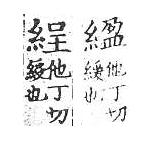 縕他丁切緩也
綎他丁切綬也